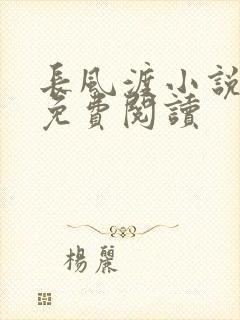 長風渡小說
免費閱讀
楊麗